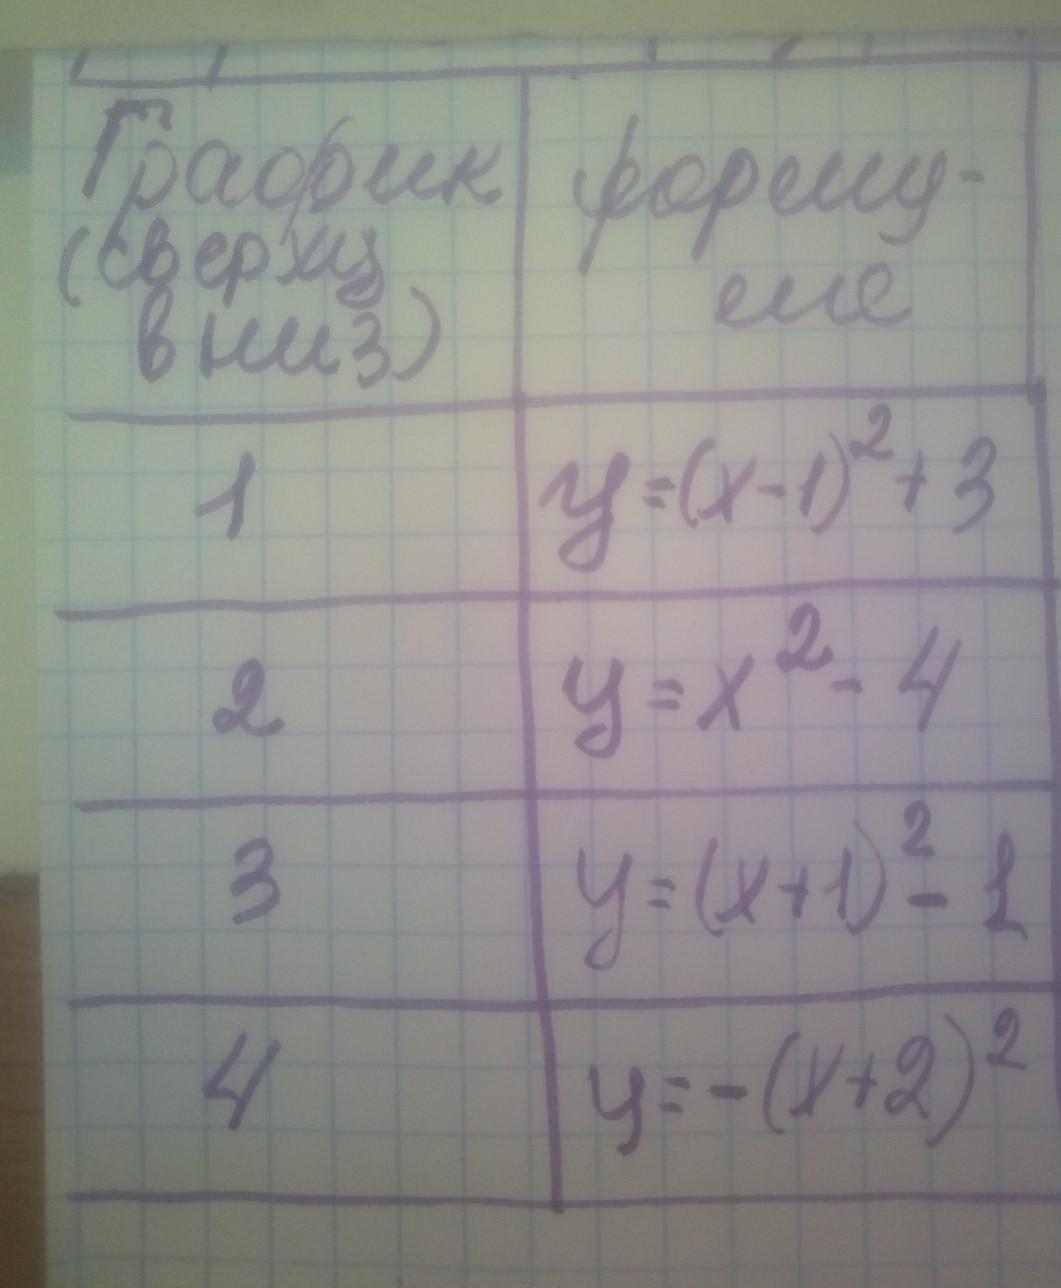 График
(сверху
вниз)
форму-
ле
1
y=(x-1)²+3
2
y=x²-4
3
y=(x+1)²-1
4
y=-(x+2)²